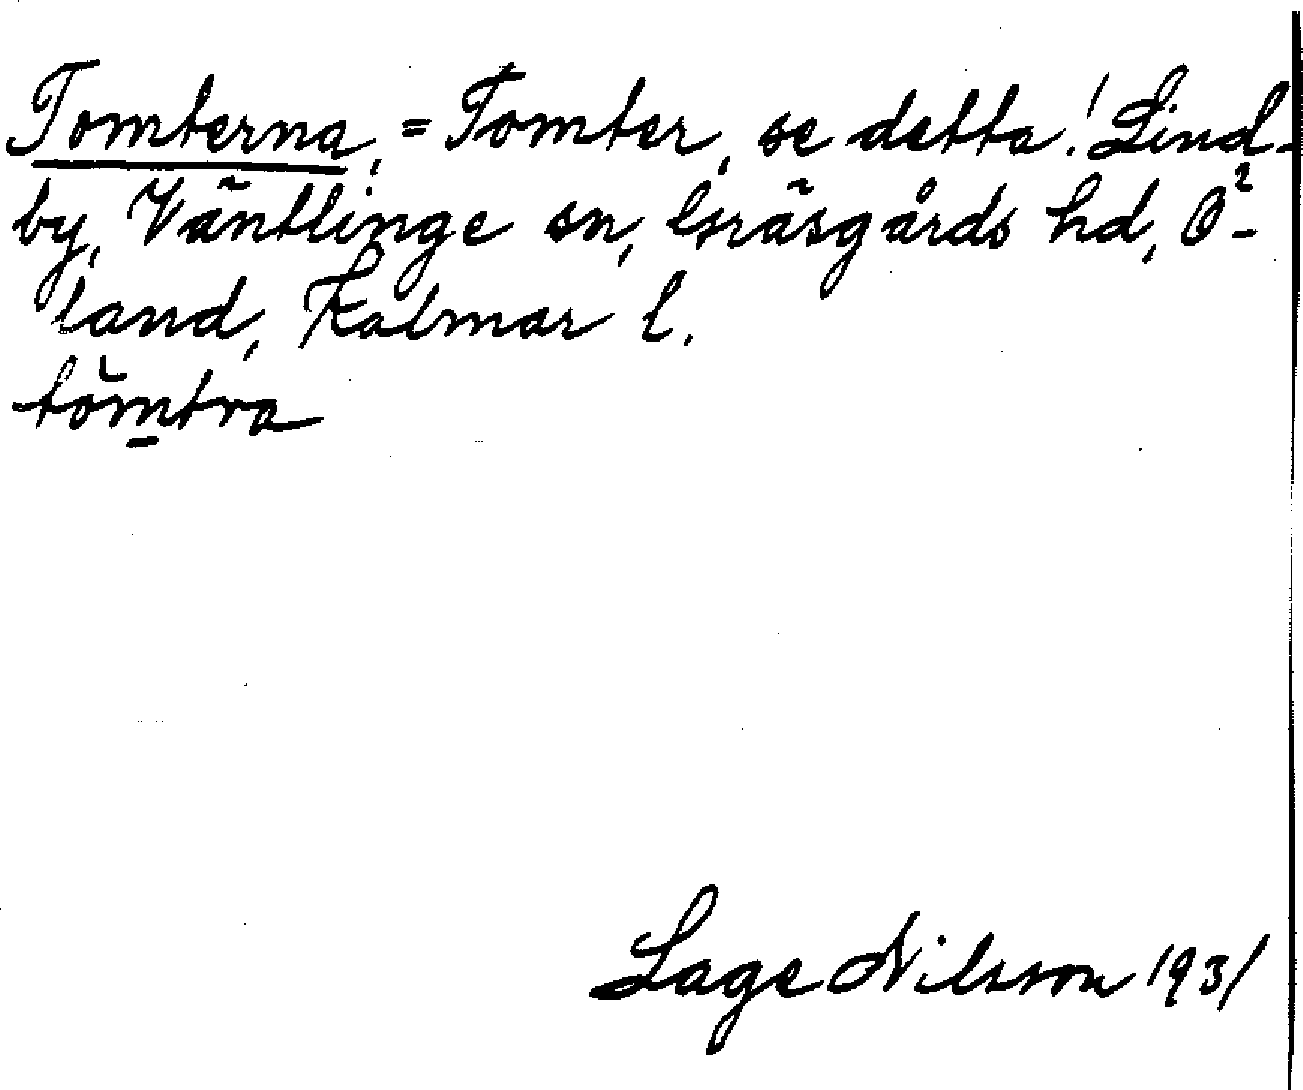 Tomterna, = Tomter, se detta! Lind-
by, Väntlinge sn, Gräsgårds hd, Ö-
land, Kalmar l.
tömtra
Lage Nilsson 1931